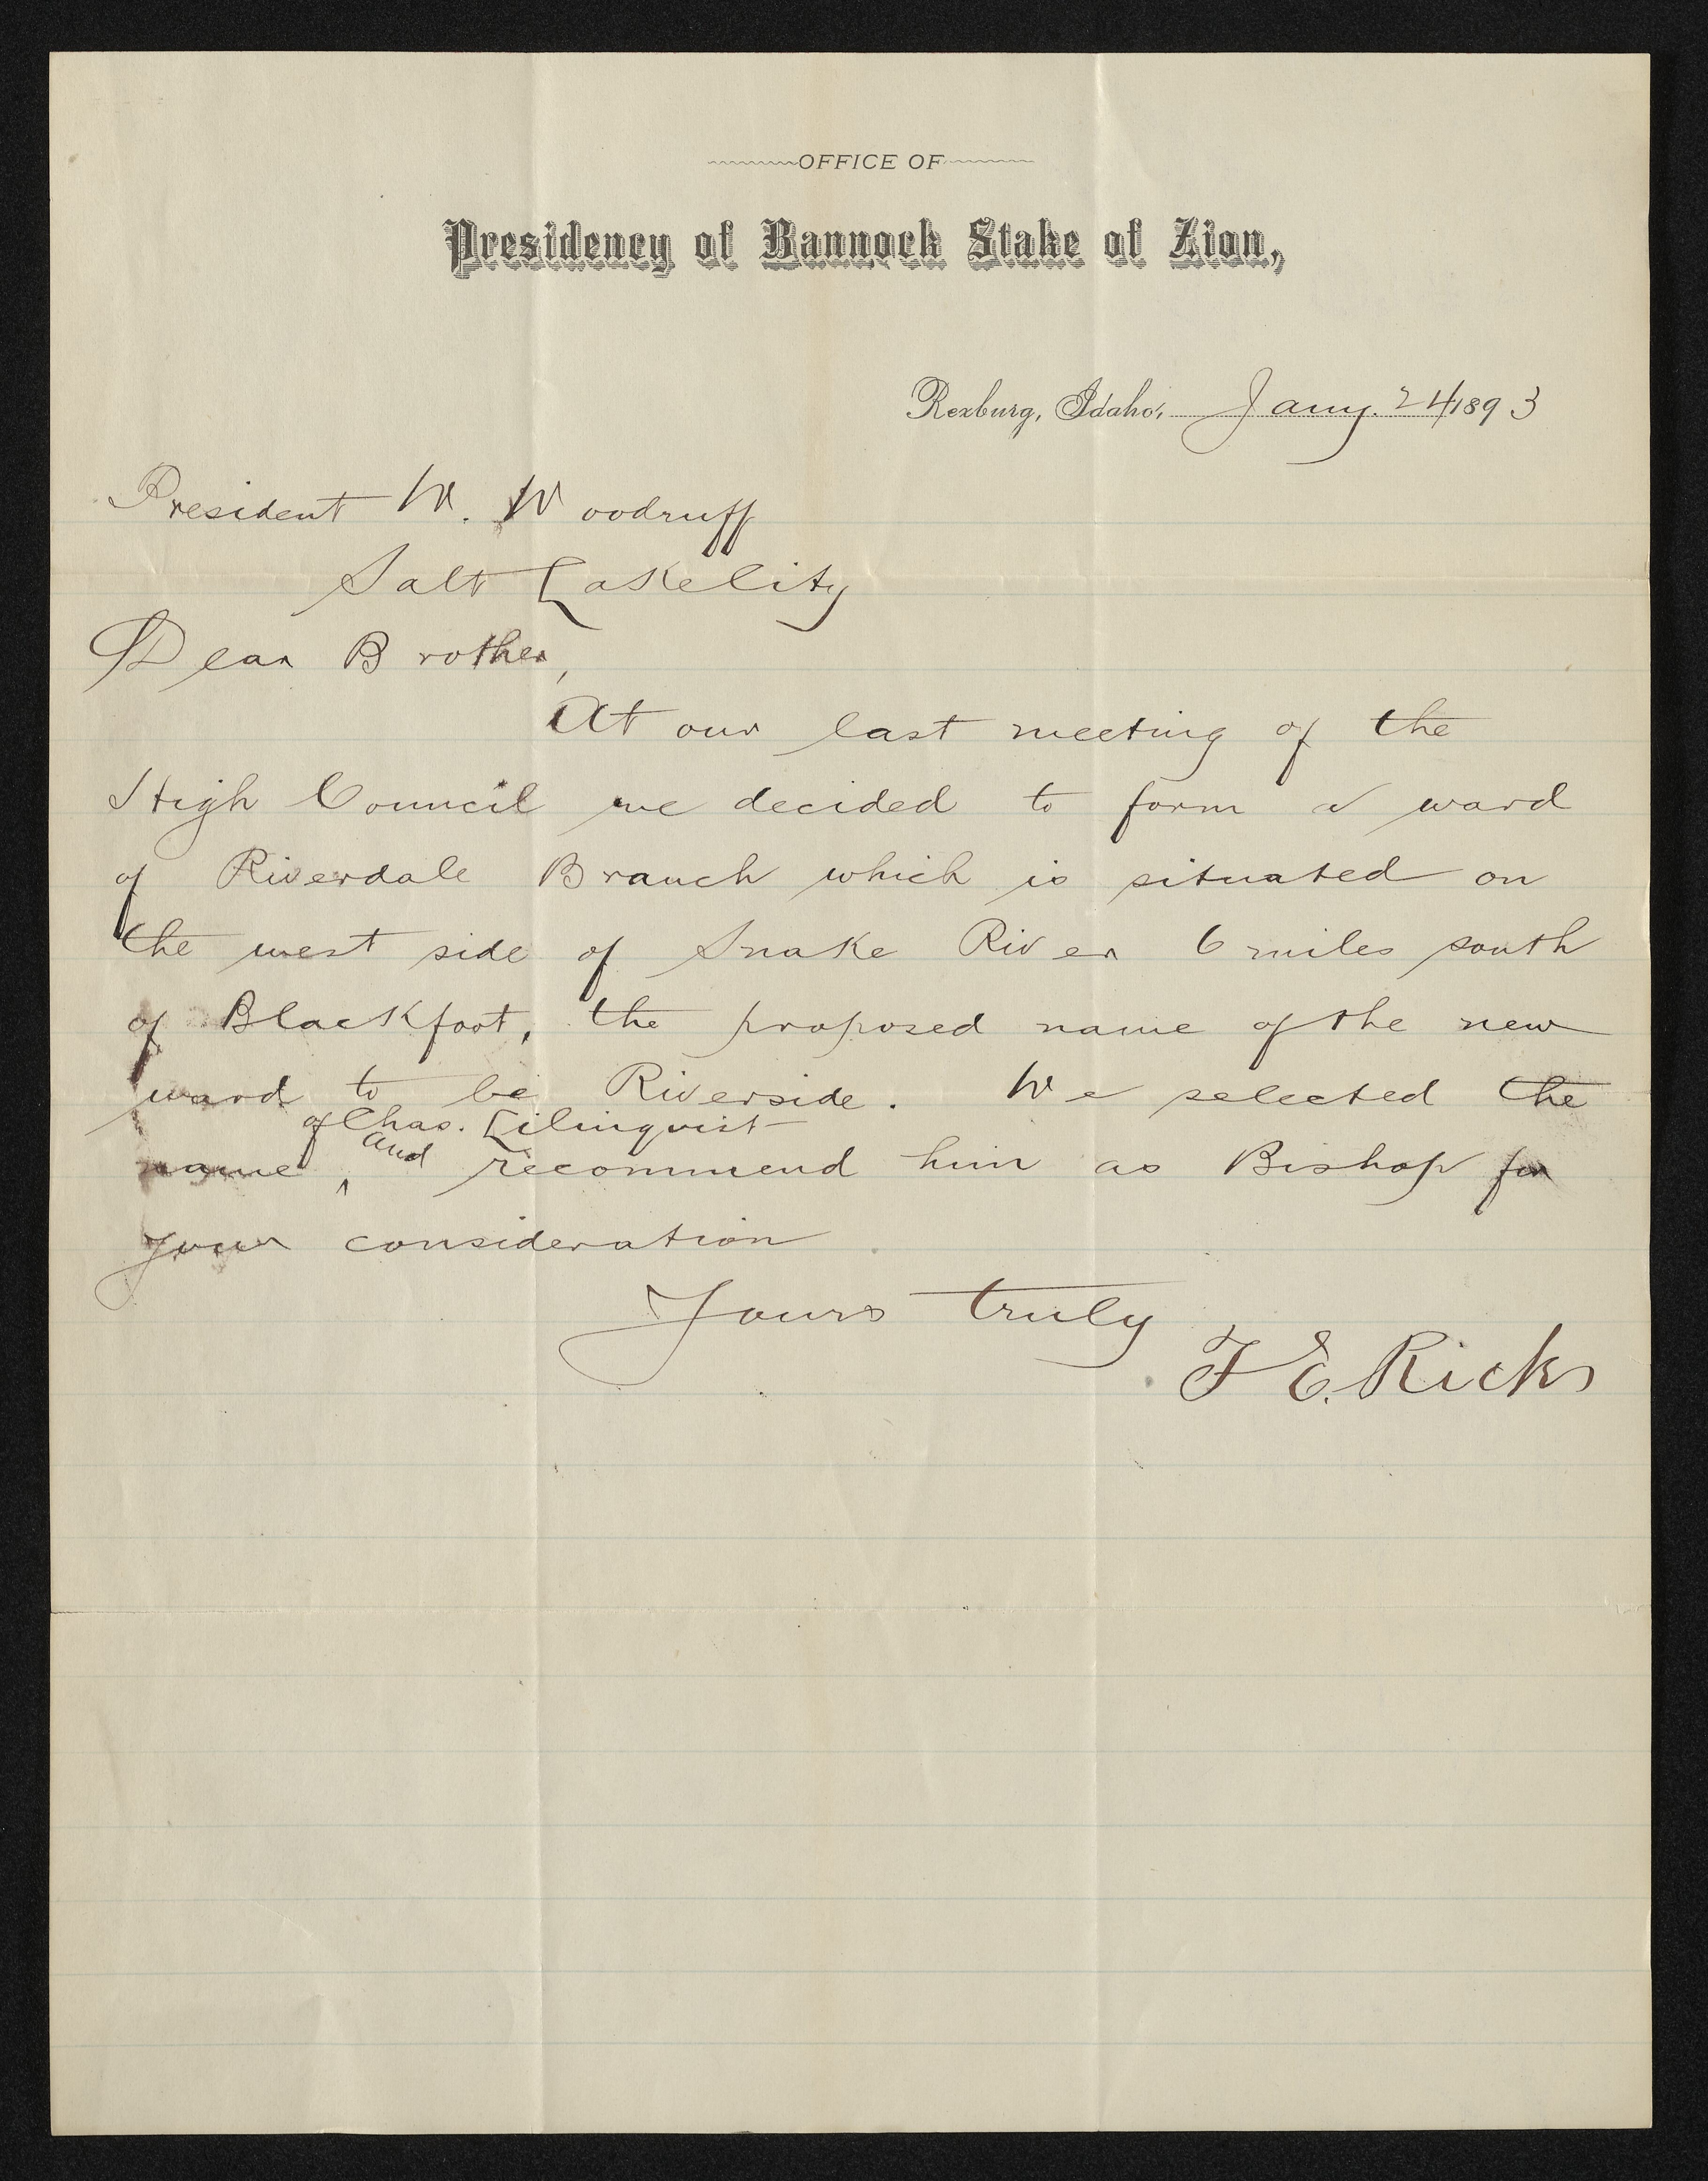 OFFICE OF
Presidency of Bannock Stake of Zion,
Rexburg, Idaho, Jany. 24 1893
President W. Woodruff
Salt Lake City
Dear Brother,
At our last meeting of the
High Council we decided to form a ward
of Riverdale Branch which is situated on
the west side of Snake River 6 miles south
of Blackfoot, the proposed name of the new
ward to be Riverside. We selected the
of Chas. Lilinqvist
name ^ and recommend him as Bishop for
your consideration
Yours truly
T E. Ricks